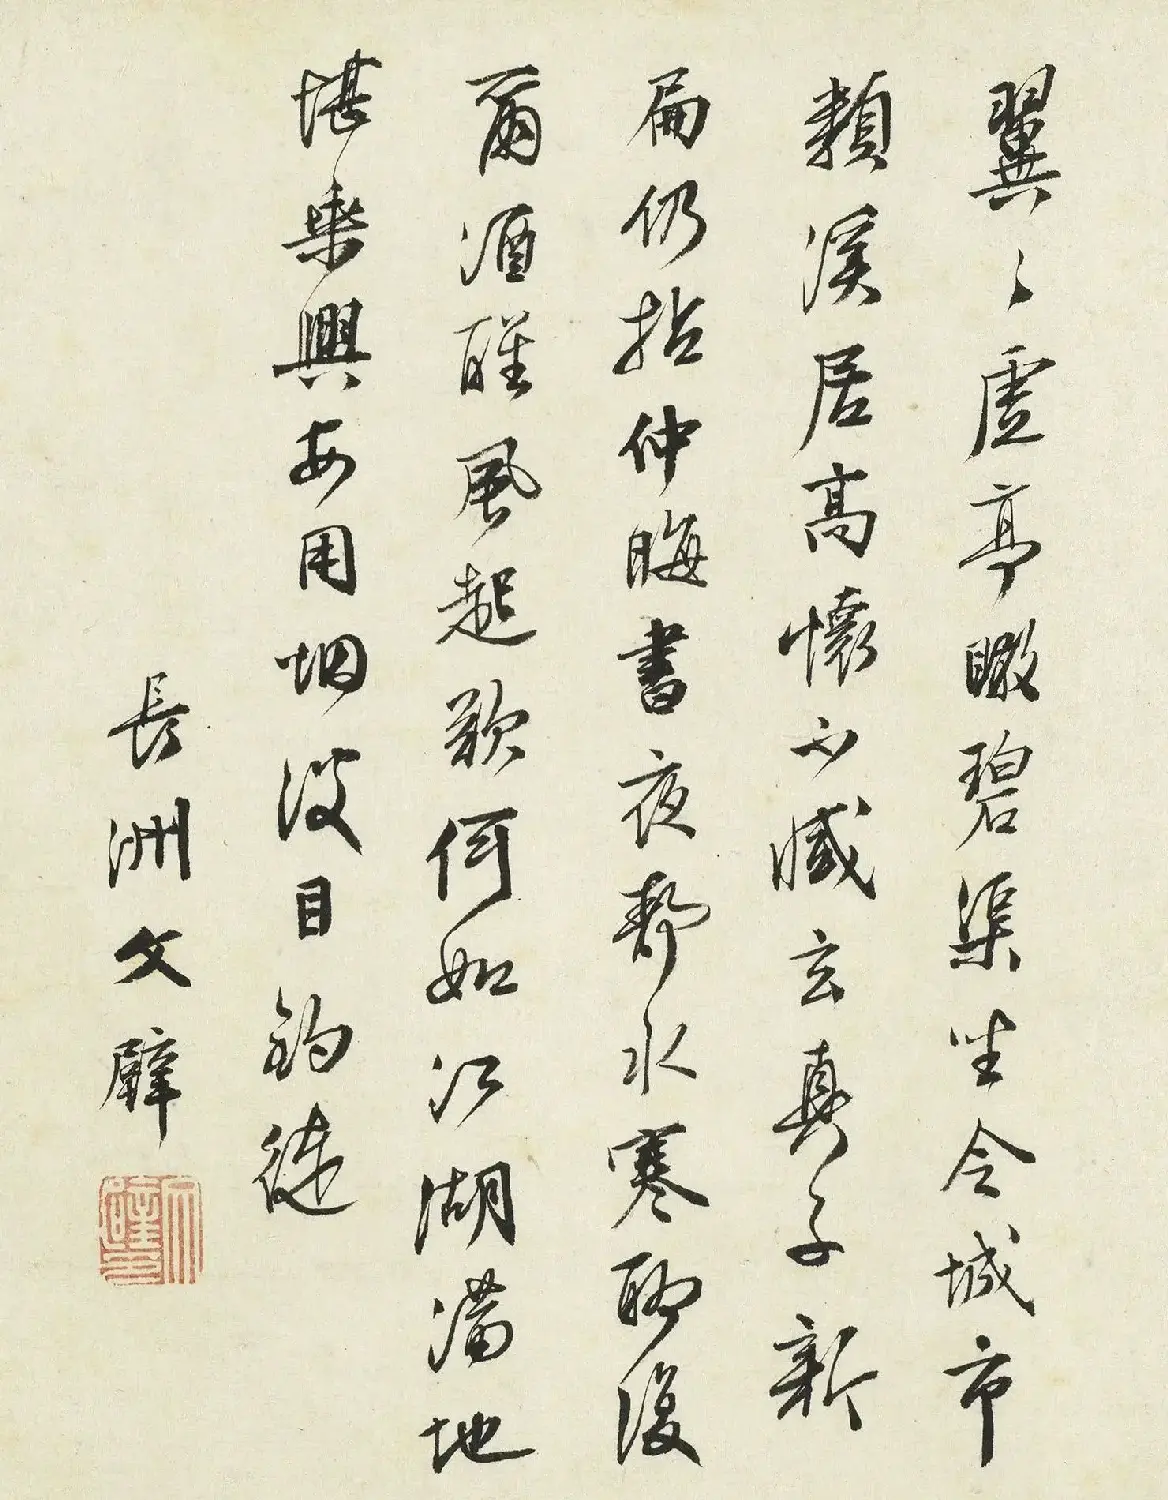 翼〻虚亭瞰碧渠坐令城市
類溪居高懷不减玄真子新
扁仍拈仲晦書夜静水寒聊復
爾酒醒風起欲何如江湖满地
堪樂興安用烟波目釣徒
長洲文壁